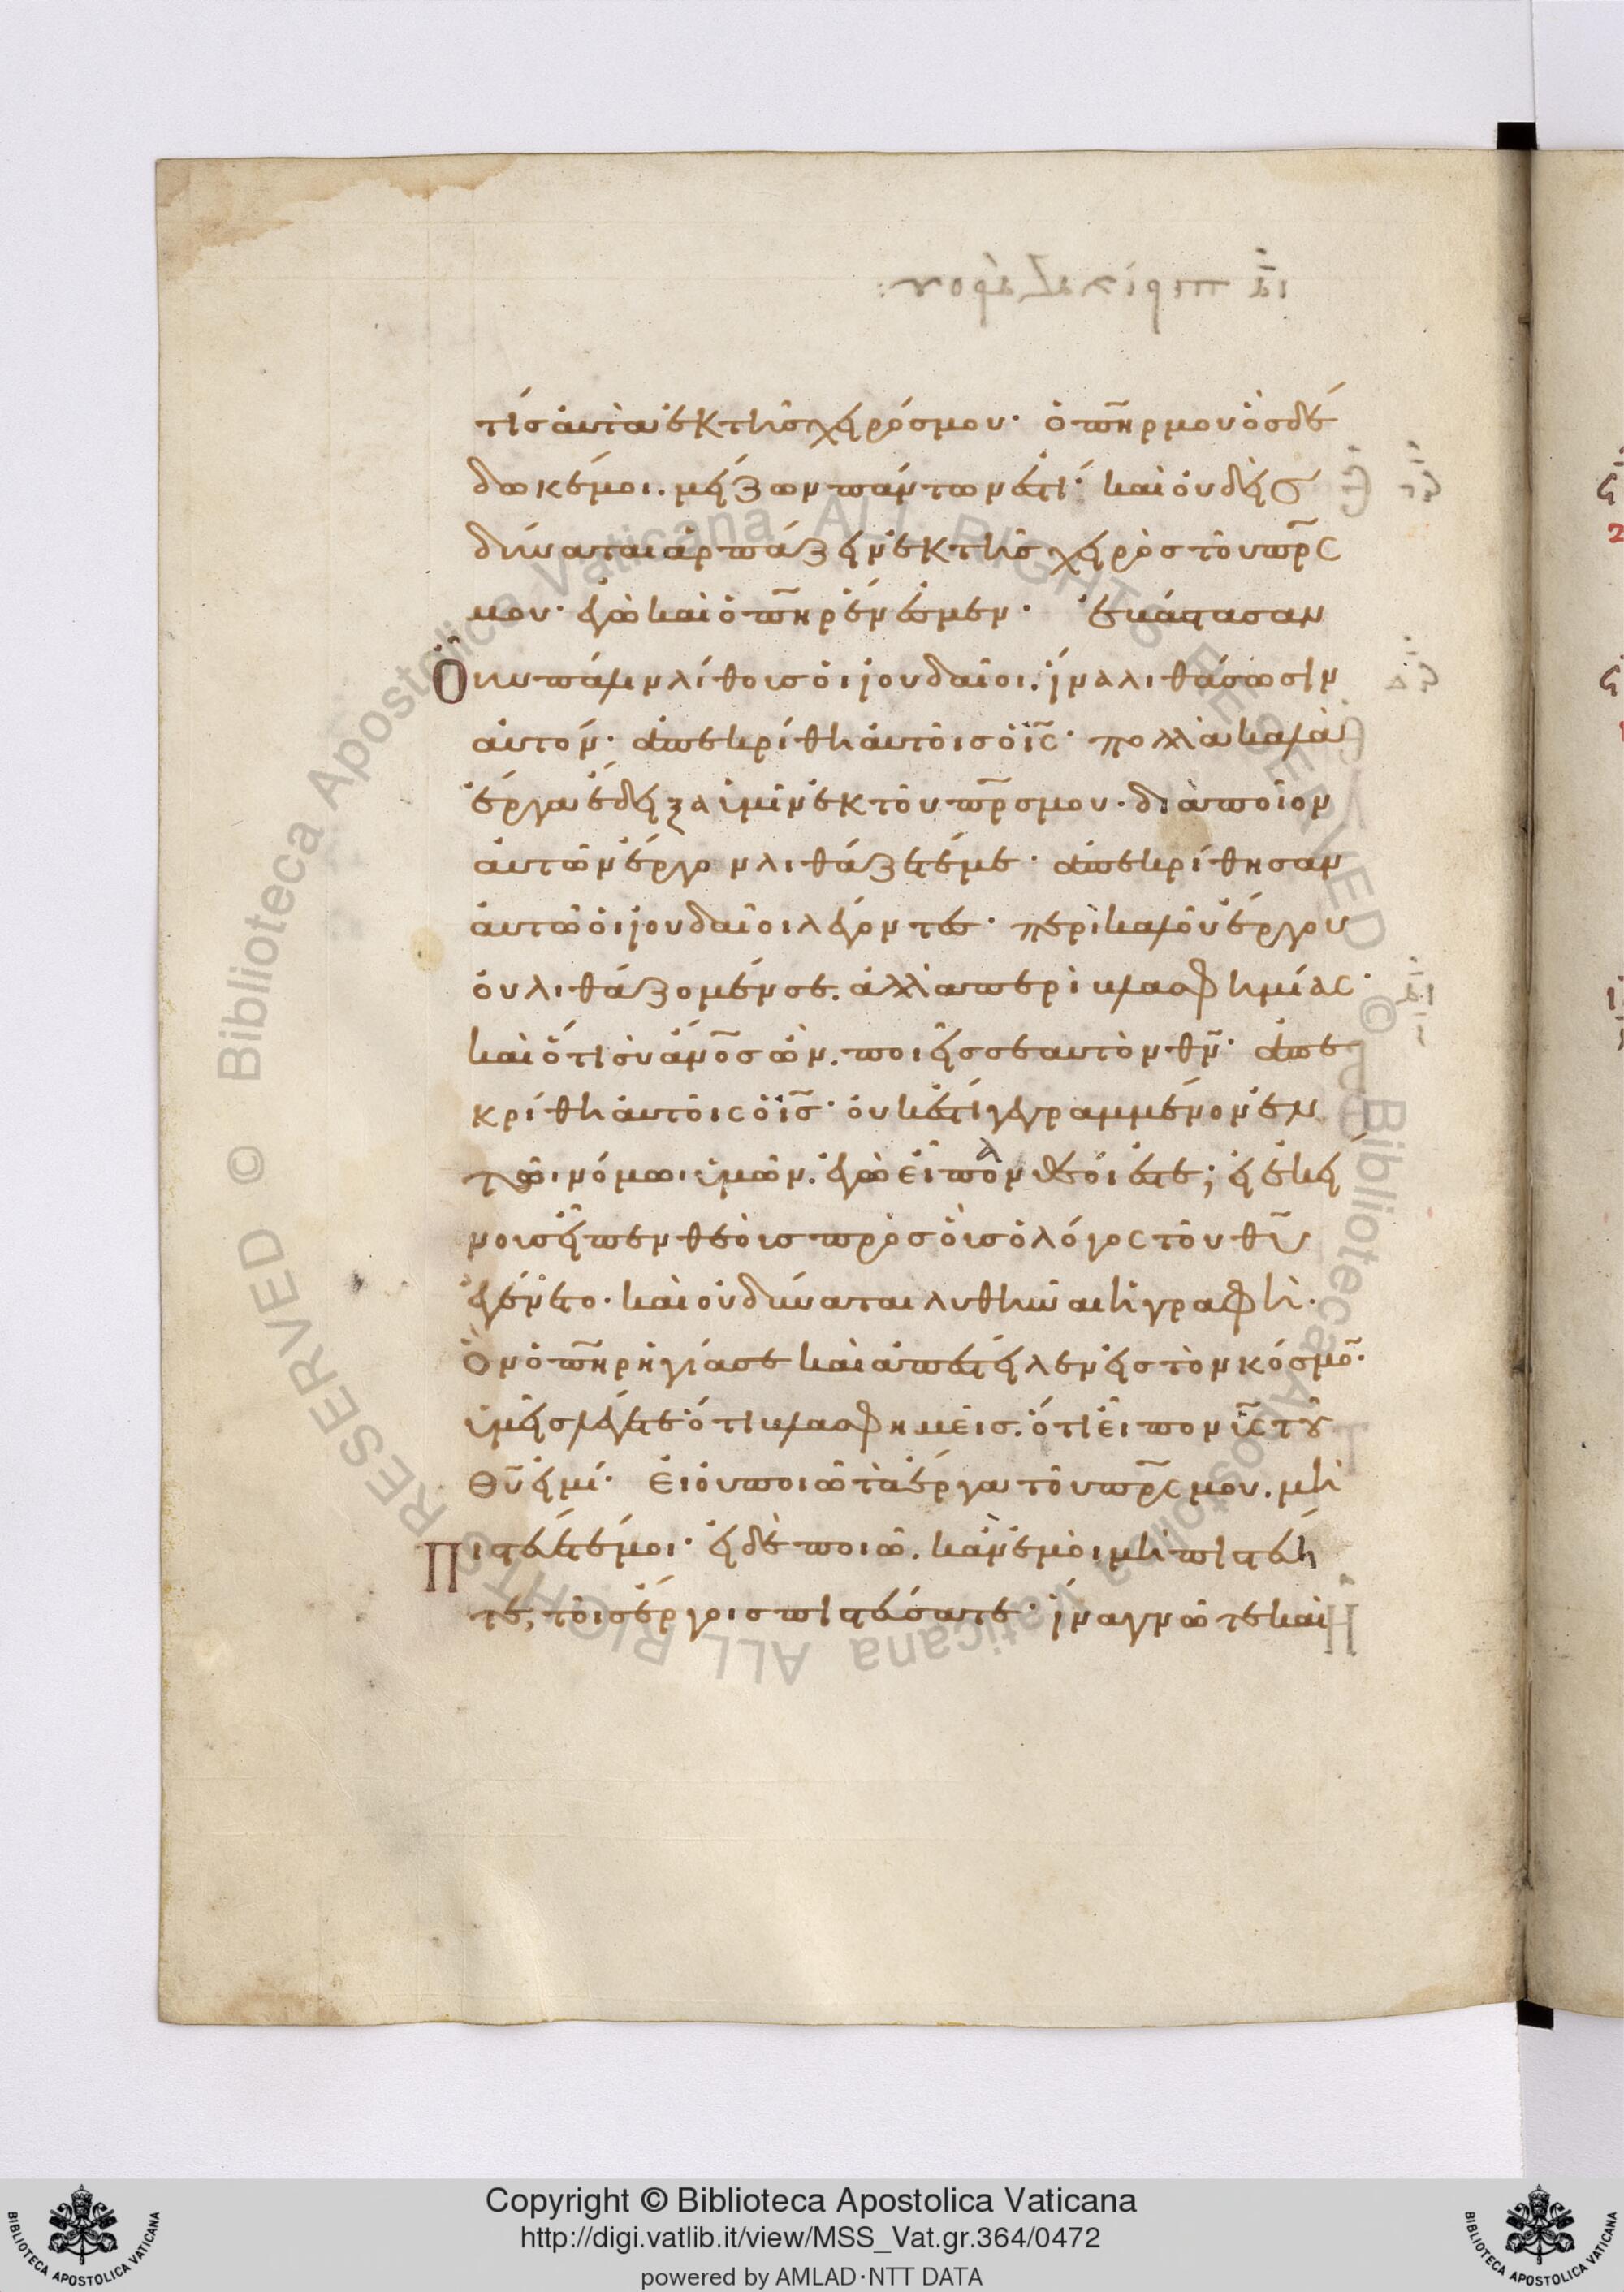 τίσ αὐτὰ ἐκ τῆσ χειρόσ μου· ὁ π̅η̅ρ μου ὃσ δέ
δωκέ μοι. μείζων πάντων ἐστί· καὶ οὐδεὶσ
δύναται ἁρπάζειν ἐκ τῆσ χειρὸσ τοῦ π̅ρ̅ς
μου· ἐγὼ καὶ ὁ π̅η̅ρ ἕν ἐσμεν· ἐβάστασαν
Οὖν πάλιν λίθουσ οἱ ἰουδαῖοι. ἵνα λιθάσωσιν
αὐτόν· ἀπεκρίθη αὐτοῖσ ὁ ι̅ς· πολλὰ καλὰ
ἔργα ἔδειξα ὑμῖν ἐκ τοῦ π̅ρ̅σ μου· διὰ ποῖον
αὐτῶν ἔργον λιθάζετέ με· ἀπεκρίθησαν
αὐτῶ οἱ ἰουδαῖοι λέγοντεσ· περὶ καλοῦ ἔργου
οὐ λιθάζομέν σε. ἀλλὰ περὶ βλασφημίας·
καὶ ὅτι σὺ ἄν̅ο̅σ ὢν. ποιεῖσ σεαυτὸν θ̅ν· ἀπε
κρίθη αὐτοῖς ὁ ι̅σ· οὐκ ἔστι γεγραμμένον ἐν
τῶι νόμωι ὑμῶν. ἐγὼ εἶπον θεοί ἐστε; εἰ ἐκεί
νουσ εἶπεν θεοὺσ πρὸσ οὓσ ὁ λόγος τοῦ θ̅υ
ἐγένετο. καὶ οὐ δύναται λυθῆναι ἡ γραφὴ.
Ὃν ὁ π̅η̅ρ ἡγίασε καὶ ἀπέστειλεν εἰσ τὸν κόσμο̅.
ὑμεῖσ λέγετε ὅτι βλασφημεῖσ. ὅτι εἶπον υ̅ς τοῦ
θ̅υ εἰμί· Εἰ οὐ ποιῶ τὰ ἔργα τοῦ π̅ρ̅ς μου. μὴ
Πιστεύετέ μοι· εἰ δὲ ποιῶ. κἂν ἐμοὶ μὴ πιστεύη
τε, τοῖσ ἔργοισ πιστεύσατε· ἵνα γνῶτε καὶ
Copyright © Biblioteca Apostolica Vaticana
http://digi.vatlib.it/view/MSS_Vat.gr.364/0472
powered by AMLAD·NTT DATA